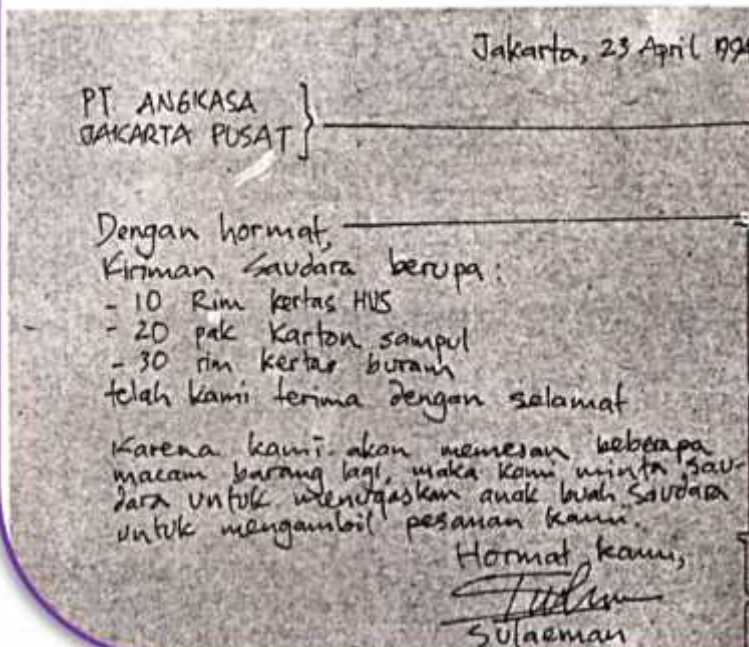 Jakarta, 23 April
PT. ANGKASA
JAKARTA PUSAT
Dengan hormat,
Kiriman Saudara berupa:
- 10 Rim kertas HVS
- 20 pak Karton sampul
- 30 rim kertas buram
telah kami terima dengan selamat
Karena kami akan memesan beberapa
macam barang lagi, maka kami minta Sau-
dara untuk menugaskan anak buah Saudara
untuk mengambil pesanan kami.
Hormat kami,
Sulaeman